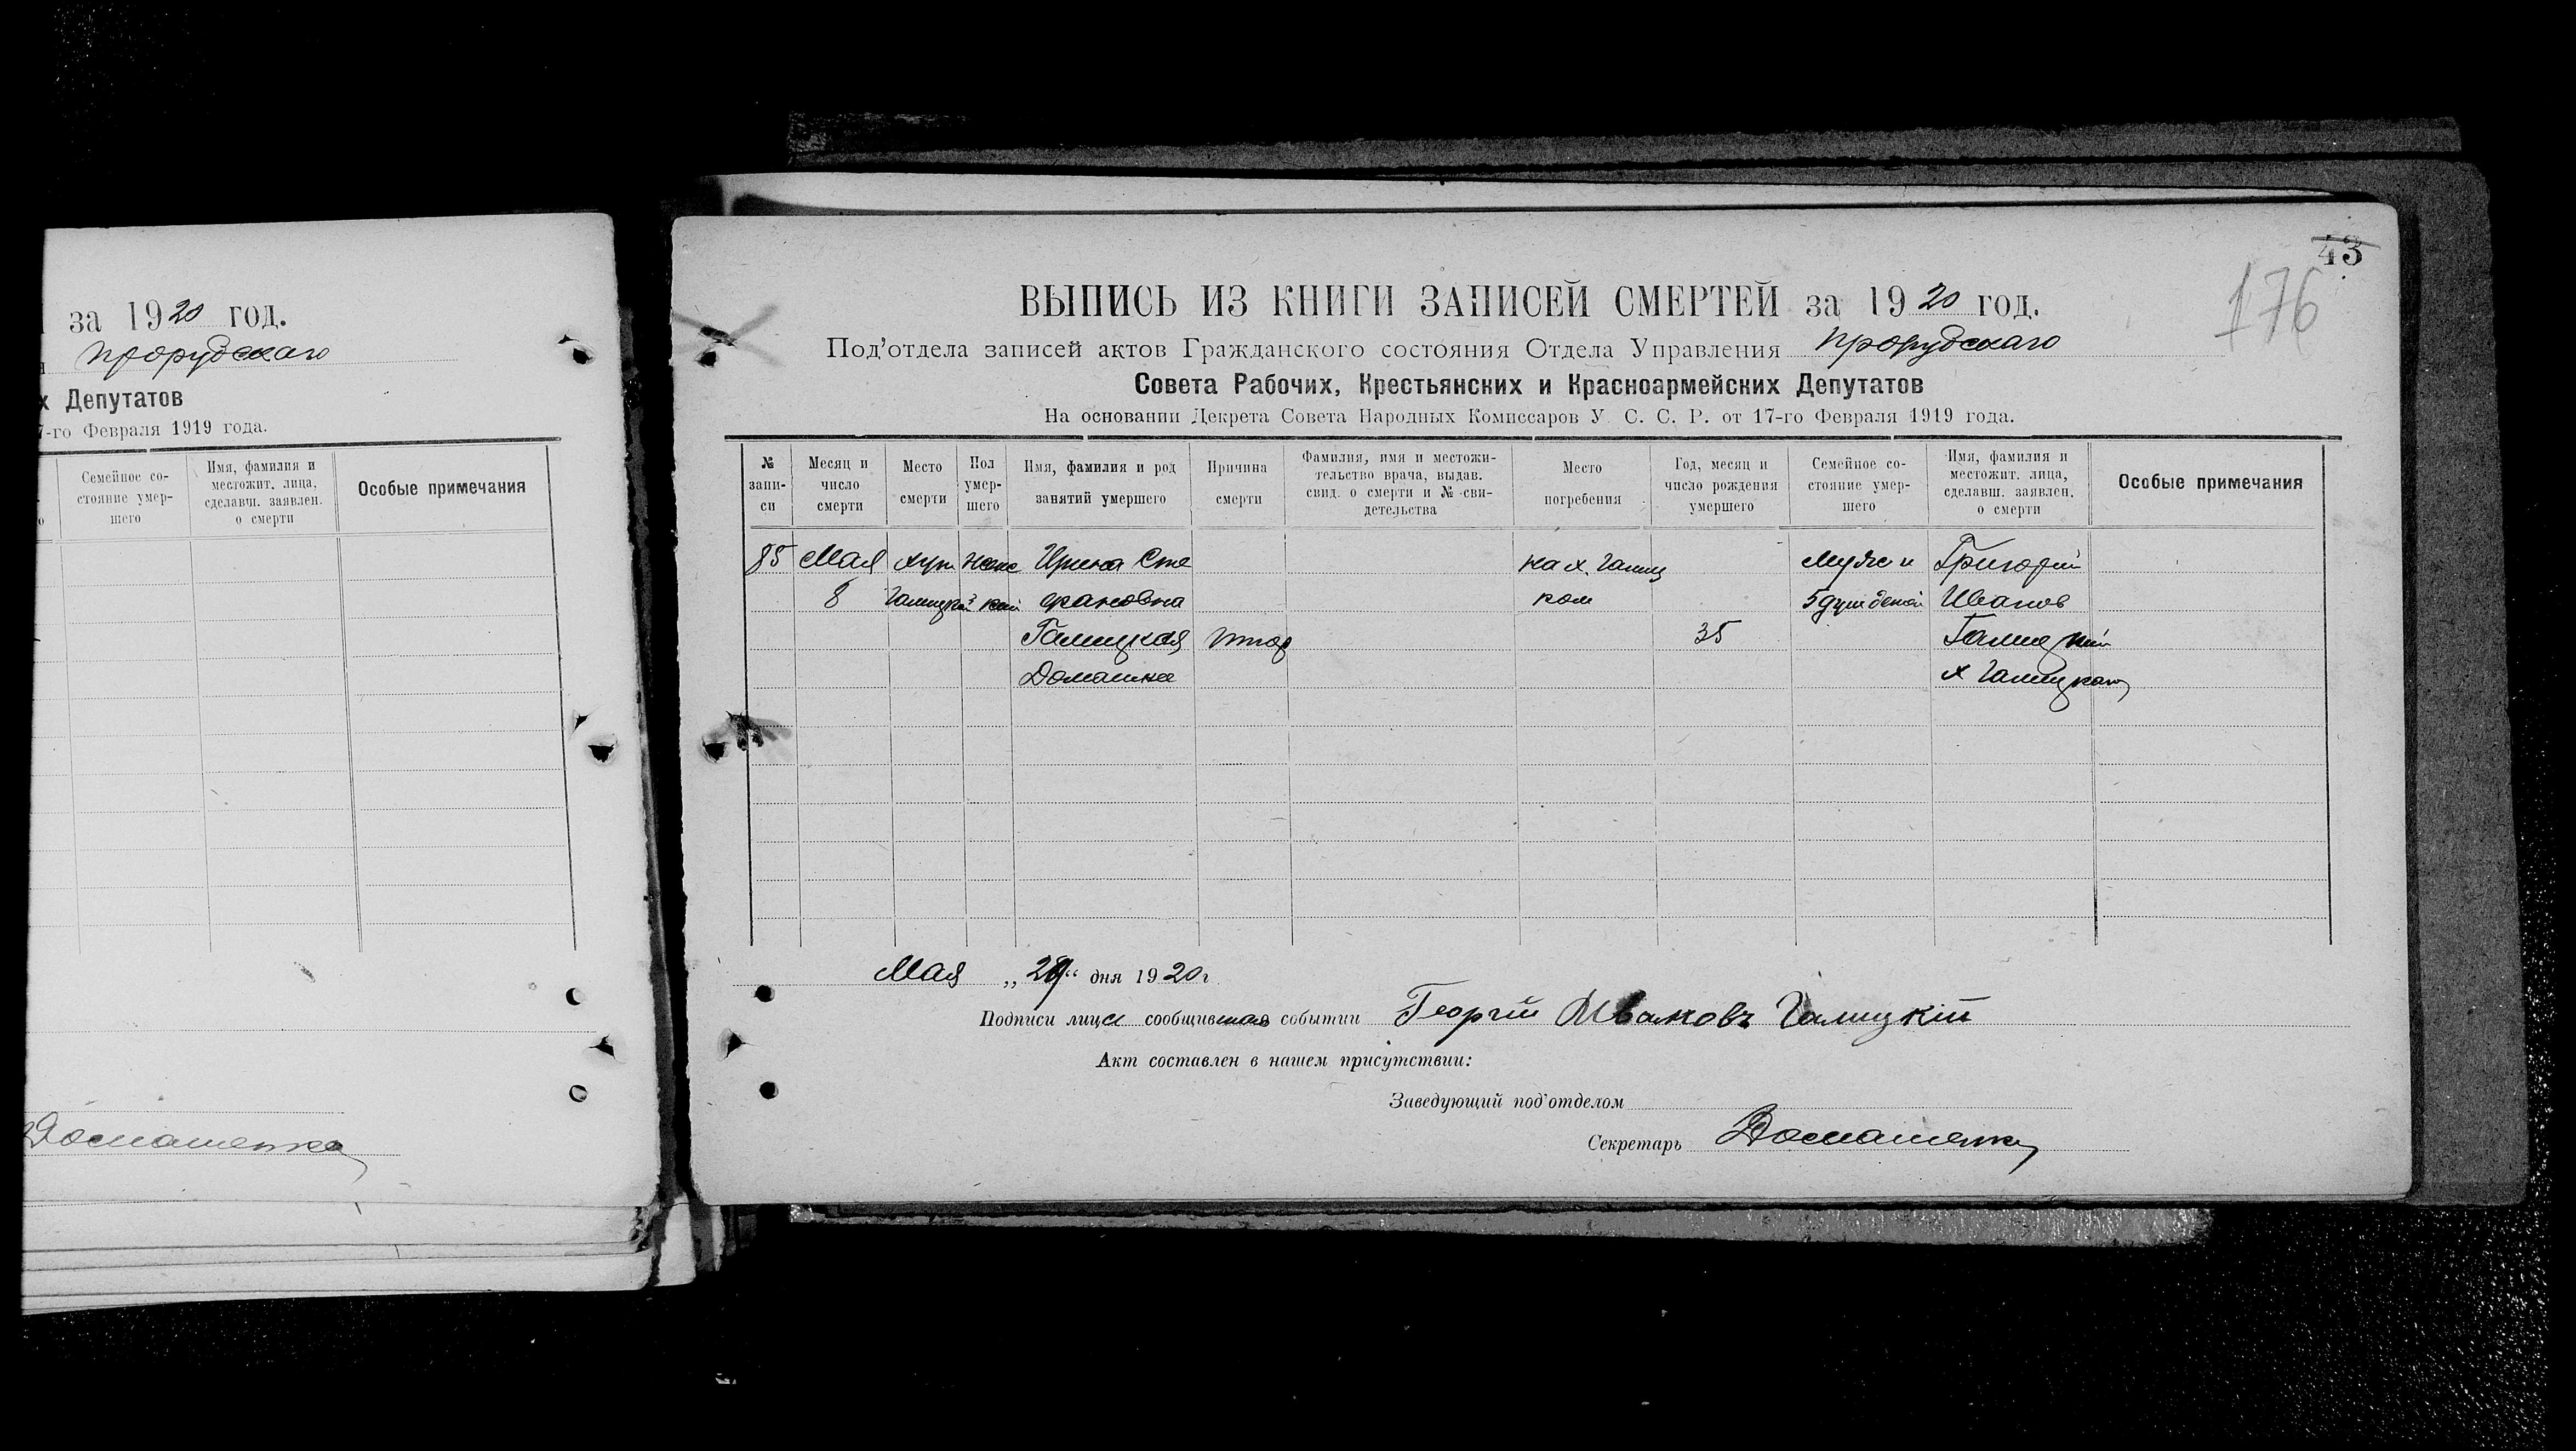 за 1920 год.
Прорубскаго
х Депутатов
7-го Февраля 1919 года.
Семейное со-
стояние умер-
шего
Имя, фамилия и
местожит. лица,
сделавш. заявлен.
о смерти
Особые примечания
Домашенко
43
176
ВЫПИСЬ ИЗ КНИГИ ЗАПИСЕЙ СМЕРТЕЙ за 1920 год.
Под'отдела записей актов Гражданского состояния Отдела Управления Прорубскаго
Совета Рабочих, Крестьянских и Красноармейских Депутатов
На основании Декрета Совета Народных Комиссаров У. С. С. Р. от 17-го Февраля 1919 года.
№
запи-
си
Месяц и
число
смерти
Место
смерти
Пол
умер-
шего
Имя, фамилия и род
занятий умершего
Причина
смерти
Фамилия, имя и местожи-
тельство врача, выдав.
свид. о смерти и № сви-
детельства
Место
погребения
Год, месяц и
число рождения
умершего
Семейное со-
стояние умер-
шего
Имя, фамилия и
местожит. лица,
сделавш. заявлен.
о смерти
Особые примечания
85 Мая хут Женс Ирина Сте на х. Галиц Муж и Григорий
8 Галицкий кий Иванов
ком 5 душ детей
Галицкая 35 Галицкий
Домашнее х Галицкаго
Мая „29“ дня 1920 г
Подписи лица сообщившаго событии Георгій Ивановъ Галицкій
Акт составлен в нашем присутствии:
Заведующий под'отделом
Секретарь Домашенко